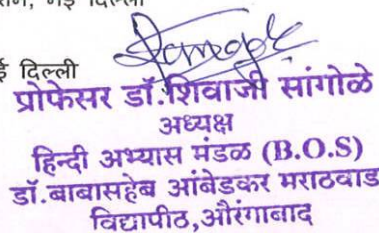 नई दिल्ली
दिल्ली
प्रोफेसर डॉ.शिवाजी सांगोळे
अध्यक्ष
हिन्दी अभ्यास मंडळ (B.O.S)
डॉ.बाबासहेब आंबेडकर मराठवाड
विद्यापीठ,औरंगाबाद